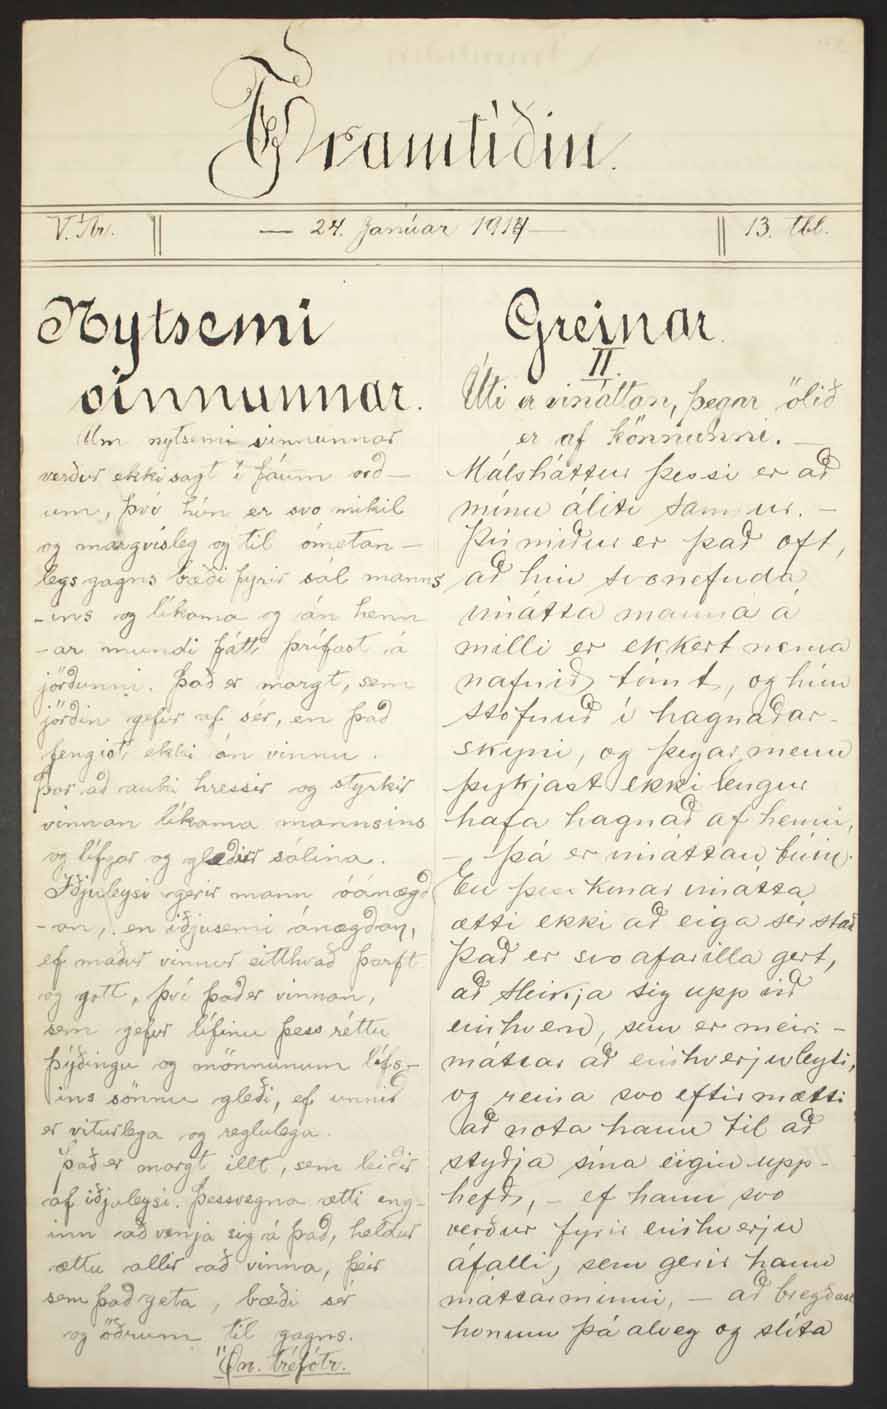 Framtíðin.
V. Ár. — 24. Janúar 1914 — 13. tbl.
Nytsemi
vinnunnar.
Um nytsemi vinnunnar
verður ekki sagt í fáum orð-
um, því hún er svo mikil
og margvísleg og til ómetan-
legs gagns bæði fyrir sál manns
-ins og líkama og án henn
-ar mundi fátt þrífast á
jörðunni. Það er margt, sem
jörðin gefur af sér, en það
fengist ekki án vinnu.
Þar að auki hressir og styrkir
vinnan líkama mannsins
og lífgar og gleðir sálina.
Iðjuleysi gerir mann óánægð
-an, en iðjusemi ánægðan,
ef maður vinnur eitthvað þarft
og gott, því það er vinnan,
sem gefur lífinu þess réttu
þýðingu og mönnunum lífs-
ins sönnu gleði, ef unnið
er viturlega og reglulega.
Það er margt illt, sem leiðir
af iðjuleysi. Þessvegna ætti eng-
inn að venja sig á það, heldur
ættu allir að vinna, þeir
sem það geta, bæði sér
og öðrum til gagns.
Ön. tréfótr.
Greinar
II.
Úti er vináttan, þegar ölið
er af könnunni. —
Málsháttur þessi er að
mínu áliti sannur. –
Því miður er það oft,
að hin svonefnda
vinátta manna á
milli er ekkert nema
nafnið tómt, og hún
stofnuð í hagnaðar-
skyni, og þegar menn
þykjast ekki lengur
hafa hagnað af henni,
– þá er vináttan búin.
En þess konar vinátta
ætti ekki að eiga sér stað
Það er svo afarilla gert,
að sleikja sig upp við
einhvern, sem er meiri-
máttar að einhverju leyti,
og reina svo eftir mætti
að nota hann til að
styðja sína eigin upp-
hefð, – ef hann svo
verður fyrir einhverju
áfalli, sem gerir hann
máttarminni, – að bregðast
honum þá alveg og slíta